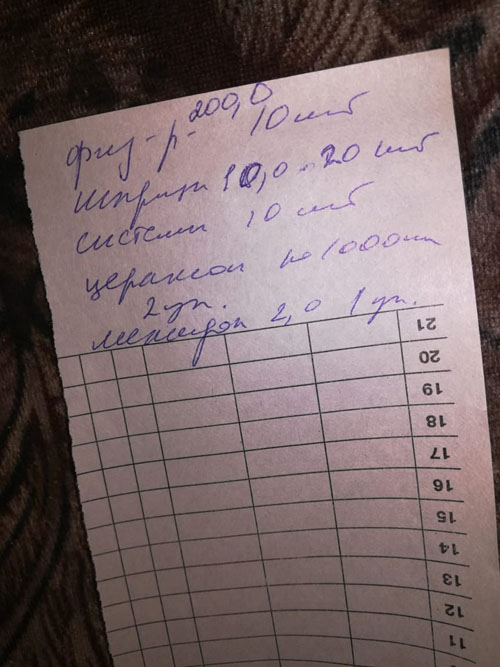 физ-р- 200,0 10 шт
шприцы 10,0 - 20 шт
системы 10 шт
цераксон по 1000мг
2 уп.
мексидол 2,0 1 уп.
21
20
19
18
17
16
15
14
13
12
11